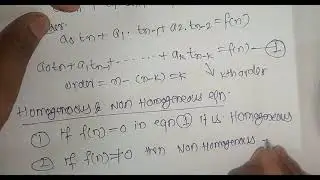 order.
a₀tn + a₁·tn-1 + a₂·tn-2 = f(n)
a₀tn + a₁tn-1 + ...... + aₖtn-k = f(n) — ①
order = n-(n-k) = k ↘ kth order
Homogeneous & Non Homogeneous eqn:
① If f(n)=0 in eqn ① it is Homogeneous
② if f(n)≠0 then Non Homogenous